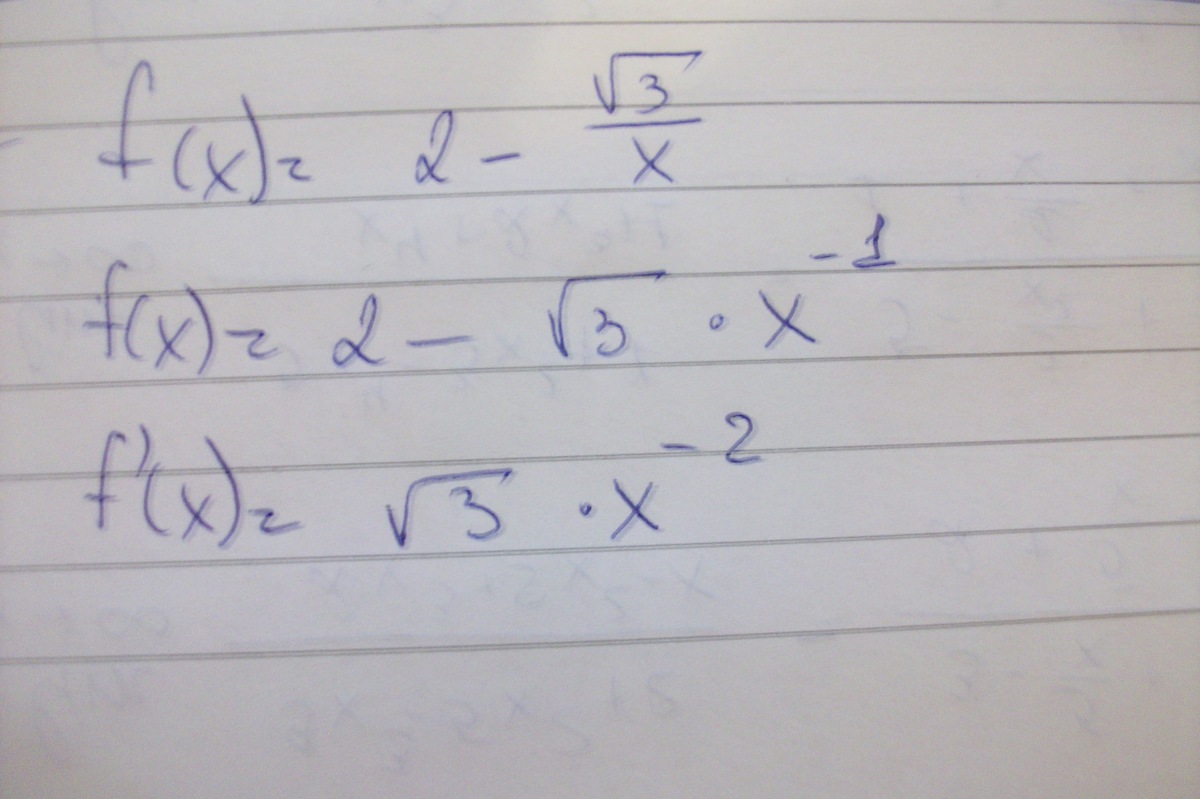 f(x) = 2 - √3/x
f(x) = 2 - √3 · x⁻¹
f'(x) = √3 · x⁻²